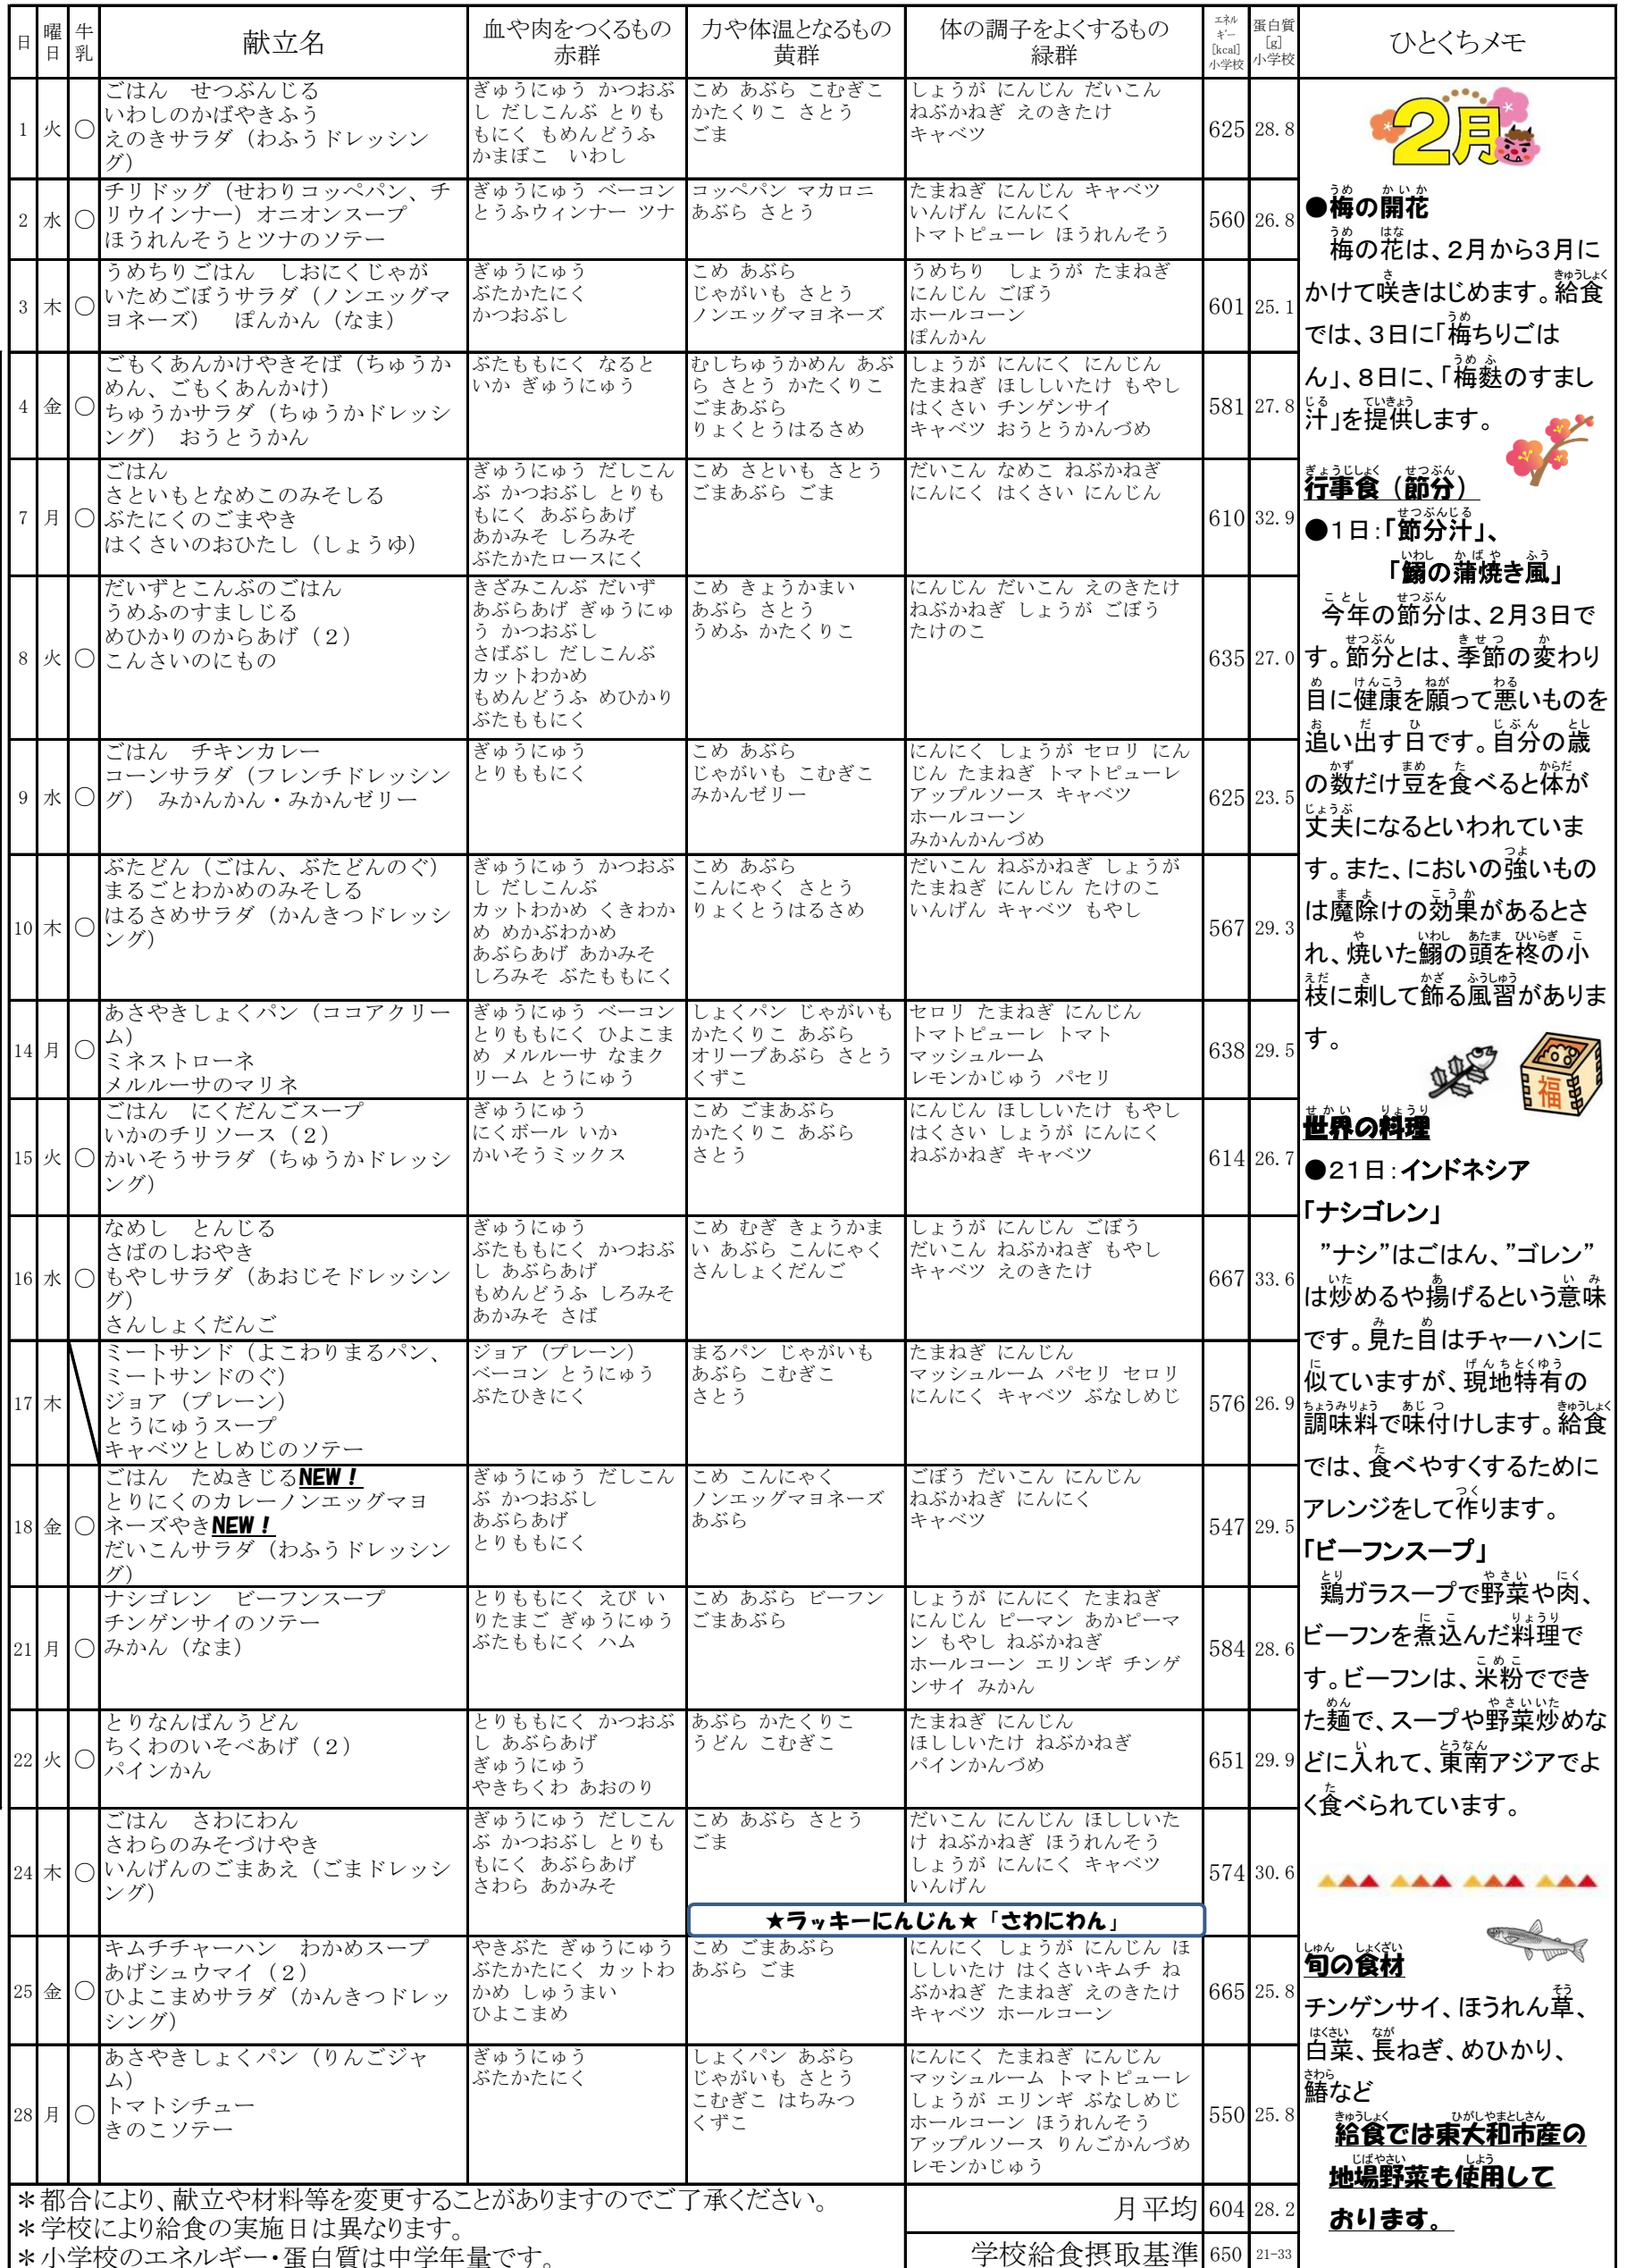 日 曜日 牛乳 献立名 血や肉をつくるもの 赤群 力や体温となるもの 黄群 体の調子をよくするもの 緑群 エネルギー [kcal] 小学校 蛋白質 [g] 小学校 ひとくちメモ
1 火 ○
ごはん　せつぶんじる
いわしのかばやきふう
えのきサラダ（わふうドレッシン
グ）
ぎゅうにゅう かつおぶ
し だしこんぶ とりも
もにく もめんどうふ
かまぼこ　いわし
こめ あぶら こむぎこ
かたくりこ さとう
ごま
しょうが にんじん だいこん
ねぶかねぎ えのきたけ
キャベツ
625 28.8
2 水 ○
チリドッグ（せわりコッペパン、チ
リウインナー）オニオンスープ
ほうれんそうとツナのソテー
ぎゅうにゅう ベーコン
とうふウィンナー ツナ
コッペパン マカロニ
あぶら さとう
たまねぎ にんじん キャベツ
いんげん にんにく
トマトピューレ ほうれんそう
560 26.8
3 木 ○
うめちりごはん　しおにくじゃが
いためごぼうサラダ（ノンエッグマ
ヨネーズ）　ぽんかん（なま）
ぎゅうにゅう
ぶたかたにく
かつおぶし
こめ あぶら
じゃがいも さとう
ノンエッグマヨネーズ
うめちり　しょうが たまねぎ
にんじん ごぼう
ホールコーン
ぽんかん
601 25.1
4 金 ○
ごもくあんかけやきそば（ちゅうか
めん、ごもくあんかけ）
ちゅうかサラダ（ちゅうかドレッシ
ング）　おうとうかん
ぶたももにく なると
いか ぎゅうにゅう
むしちゅうかめん あぶ
ら さとう かたくりこ
ごまあぶら
りょくとうはるさめ
しょうが にんにく にんじん
たまねぎ ほししいたけ もやし
はくさい チンゲンサイ
キャベツ おうとうかんづめ
581 27.8
7 月 ○
ごはん
さといもとなめこのみそしる
ぶたにくのごまやき
はくさいのおひたし（しょうゆ）
ぎゅうにゅう だしこん
ぶ かつおぶし とりも
もにく あぶらあげ
あかみそ しろみそ
ぶたかたロースにく
こめ さといも さとう
ごまあぶら ごま
だいこん なめこ ねぶかねぎ
にんにく はくさい にんじん
610 32.9
8 火 ○
だいずとこんぶのごはん
うめふのすましじる
めひかりのからあげ（２）
こんさいのにもの
きざみこんぶ だいず
あぶらあげ ぎゅうにゅ
う かつおぶし
さばぶし だしこんぶ
カットわかめ
もめんどうふ めひかり
ぶたももにく
こめ きょうかまい
あぶら さとう
うめふ かたくりこ
にんじん だいこん えのきたけ
ねぶかねぎ しょうが ごぼう
たけのこ
635 27.0
9 水 ○
ごはん　チキンカレー
コーンサラダ（フレンチドレッシン
グ）　みかんかん・みかんゼリー
ぎゅうにゅう
とりももにく
こめ あぶら
じゃがいも こむぎこ
みかんゼリー
にんにく しょうが セロリ にん
じん たまねぎ トマトピューレ
アップルソース キャベツ
ホールコーン
みかんかんづめ
625 23.5
10 木 ○
ぶたどん（ごはん、ぶたどんのぐ）
まるごとわかめのみそしる
はるさめサラダ（かんきつドレッシ
ング）
ぎゅうにゅう かつおぶ
し だしこんぶ
カットわかめ くきわか
め めかぶわかめ
あぶらあげ あかみそ
しろみそ ぶたももにく
こめ あぶら
こんにゃく さとう
りょくとうはるさめ
だいこん ねぶかねぎ しょうが
たまねぎ にんじん たけのこ
いんげん キャベツ もやし
567 29.3
14 月 ○
あさやきしょくパン（ココアクリー
ム）
ミネストローネ
メルルーサのマリネ
ぎゅうにゅう ベーコン
とりももにく ひよこま
め メルルーサ なまク
リーム とうにゅう
しょくパン じゃがいも
かたくりこ あぶら
オリーブあぶら さとう
くずこ
セロリ たまねぎ にんじん
トマトピューレ トマト
マッシュルーム
レモンかじゅう パセリ
638 29.5
15 火 ○
ごはん　にくだんごスープ
いかのチリソース（２）
かいそうサラダ（ちゅうかドレッシ
ング）
ぎゅうにゅう
にくボール いか
かいそうミックス
こめ ごまあぶら
かたくりこ あぶら
さとう
にんじん ほししいたけ もやし
はくさい しょうが にんにく
ねぶかねぎ キャベツ
614 26.7
16 水 ○
なめし　とんじる
さばのしおやき
もやしサラダ（あおじそドレッシン
グ）
さんしょくだんご
ぎゅうにゅう
ぶたももにく かつおぶ
し あぶらあげ
もめんどうふ しろみそ
あかみそ さば
こめ むぎ きょうかま
い あぶら こんにゃく
さんしょくだんご
しょうが にんじん ごぼう
だいこん ねぶかねぎ もやし
キャベツ えのきたけ
667 33.6
17 木
ミートサンド（よこわりまるパン、
ミートサンドのぐ）
ジョア（プレーン）
とうにゅうスープ
キャベツとしめじのソテー
ジョア（プレーン）
ベーコン とうにゅう
ぶたひきにく
まるパン じゃがいも
あぶら こむぎこ
さとう
たまねぎ にんじん
マッシュルーム パセリ セロリ
にんにく キャベツ ぶなしめじ
576 26.9
18 金 ○
ごはん　たぬきじるNEW！
とりにくのカレーノンエッグマヨ
ネーズやきNEW！
だいこんサラダ（わふうドレッシン
グ）
ぎゅうにゅう だしこん
ぶ かつおぶし
あぶらあげ
とりももにく
こめ こんにゃく
ノンエッグマヨネーズ
あぶら
ごぼう だいこん にんじん
ねぶかねぎ にんにく
キャベツ
547 29.5
21 月 ○
ナシゴレン　ビーフンスープ
チンゲンサイのソテー
みかん（なま）
とりももにく えび い
りたまご ぎゅうにゅう
ぶたももにく ハム
こめ あぶら ビーフン
ごまあぶら
しょうが にんにく たまねぎ
にんじん ピーマン あかピーマ
ン もやし ねぶかねぎ
ホールコーン エリンギ チンゲ
ンサイ みかん
584 28.6
22 火 ○
とりなんばんうどん
ちくわのいそべあげ（２）
パインかん
とりももにく かつおぶ
し あぶらあげ
ぎゅうにゅう
やきちくわ あおのり
あぶら かたくりこ
うどん こむぎこ
たまねぎ にんじん
ほししいたけ ねぶかねぎ
パインかんづめ
651 29.9
24 木 ○
ごはん　さわにわん
さわらのみそづけやき
いんげんのごまあえ（ごまドレッシ
ング）
ぎゅうにゅう だしこん
ぶ かつおぶし とりも
もにく あぶらあげ
さわら あかみそ
こめ あぶら さとう
ごま
だいこん にんじん ほししいた
け ねぶかねぎ ほうれんそう
しょうが にんにく キャベツ
いんげん
574 30.6
★ラッキーにんじん★「さわにわん」
25 金 ○
キムチチャーハン　わかめスープ
あげシュウマイ（２）
ひよこまめサラダ（かんきつドレッ
シング）
やきぶた ぎゅうにゅう
ぶたかたにく カットわ
かめ しゅうまい
ひよこまめ
こめ ごまあぶら
あぶら ごま
にんにく しょうが にんじん ほ
ししいたけ はくさいキムチ ね
ぶかねぎ たまねぎ えのきたけ
キャベツ ホールコーン
665 25.8
28 月 ○
あさやきしょくパン（りんごジャ
ム）
トマトシチュー
きのこソテー
ぎゅうにゅう
ぶたかたにく
しょくパン あぶら
じゃがいも さとう
こむぎこ はちみつ
くずこ
にんにく たまねぎ にんじん
マッシュルーム トマトピューレ
しょうが エリンギ ぶなしめじ
ホールコーン ほうれんそう
アップルソース りんごかんづめ
レモンかじゅう
550 25.8
＊都合により、献立や材料等を変更することがありますのでご了承ください。
＊学校により給食の実施日は異なります。
＊小学校のエネルギー・蛋白質は中学年量です。
月平均 604 28.2
学校給食摂取基準 650 21-33
2月
●梅の開花
梅の花は、２月から３月に
かけて咲きはじめます。給食
では、３日に「梅ちりごは
ん」、８日に、「梅麩のすまし
汁」を提供します。
行事食（節分）
●１日：「節分汁」、
「鰯の蒲焼き風」
今年の節分は、２月３日で
す。節分とは、季節の変わり
目に健康を願って悪いものを
追い出す日です。自分の歳
の数だけ豆を食べると体が
丈夫になるといわれていま
す。また、においの強いもの
は魔除けの効果があるとさ
れ、焼いた鰯の頭を柊の小
枝に刺して飾る風習がありま
す。
福
世界の料理
●２１日：インドネシア
「ナシゴレン」
”ナシ”はごはん、”ゴレン”
は炒めるや揚げるという意味
です。見た目はチャーハンに
似ていますが、現地特有の
調味料で味付けします。給食
では、食べやすくするために
アレンジをして作ります。
「ビーフンスープ」
鶏ガラスープで野菜や肉、
ビーフンを煮込んだ料理で
す。ビーフンは、米粉ででき
た麺で、スープや野菜炒めな
どに入れて、東南アジアでよ
く食べられています。
旬の食材
チンゲンサイ、ほうれん草、
白菜、長ねぎ、めひかり、
鰆など
給食では東大和市産の
地場野菜も使用して
おります。